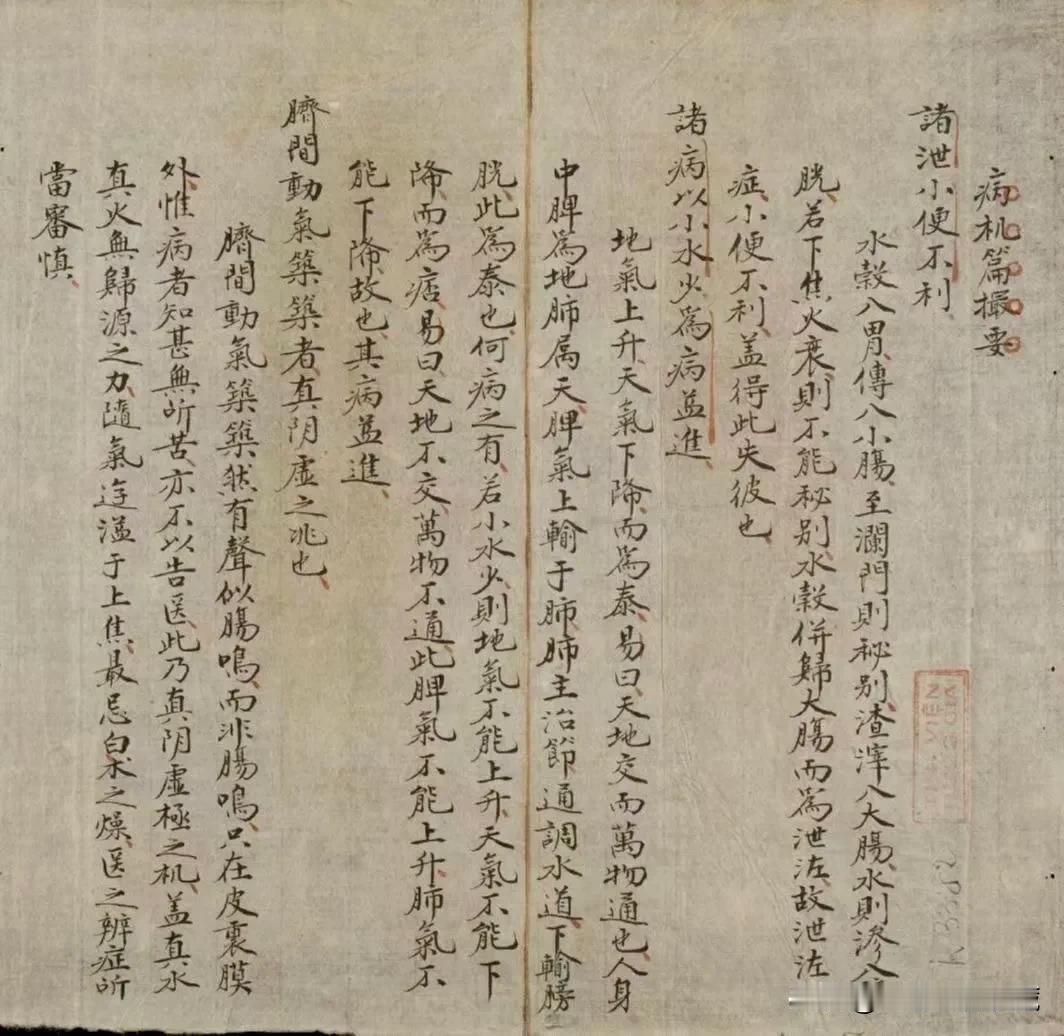 病机篇撮要
諸泄小便不利
水穀入胃傳入小腸至瀾門則秘別渣滓入大腸水則滲入膀
胱若下焦火衰則不能秘別水穀併歸大腸而為泄泻故泄泻
症小便不利盖得此失彼也
諸病以小水少為病益進
地氣上升天氣下降而為泰易曰天地交而萬物通也人身
中脾為地肺属天脾氣上輸于肺肺主治節通調水道下輸膀
胱此為泰也何病之有若小水少則地氣不能上升天氣不能下
降而為痞易曰天地不交萬物不通此脾氣不能上升肺氣不
能下降故也其病益進
臍間動氣築築者真阴虛之兆也
臍間動氣築築然有聲似腸鳴而非腸鳴只在皮裏膜
外惟病者知甚無所苦亦不以告医此乃真阴虛極之机盖真水
真火無歸源之力隨氣逆溢于上焦最忌白术之燥医之辨症所
當審慎